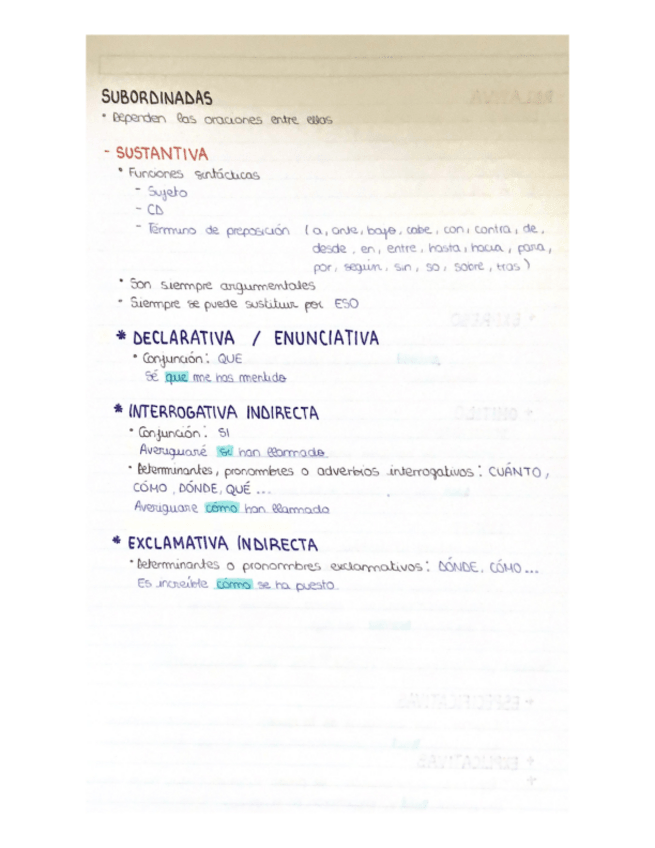 SUBORDINADAS
• Dependen las oraciones entre ellas
- SUSTANTIVA
• Funciones sintácticas
- Sujeto
- CD
- Término de preposición (a, ante, bajo, cabe, con, contra, de,
desde, en, entre, hasta, hacia, para,
por, según, sin, so, sobre, tras)
• Son siempre argumentales
• Siempre se puede sustituir por ESO
* DECLARATIVA / ENUNCIATIVA
• Conjunción: QUE
Sé que me has mentido
* INTERROGATIVA INDIRECTA
• Conjunción: SI
Averiguaré si han llamado
• Determinantes, pronombres o adverbios interrogativos: CUÁNTO,
CÓMO, DÓNDE, QUÉ ...
Averiguare cómo han llamado
* EXCLAMATIVA INDIRECTA
• Determinantes o pronombres exclamativos: DÓNDE, CÓMO...
Es increíble cómo se ha puesto
RELATIVA
+ EXPRESO
+ OMITIDO
+ ESPECIFICATIVAS
+ EXPLICATIVAS